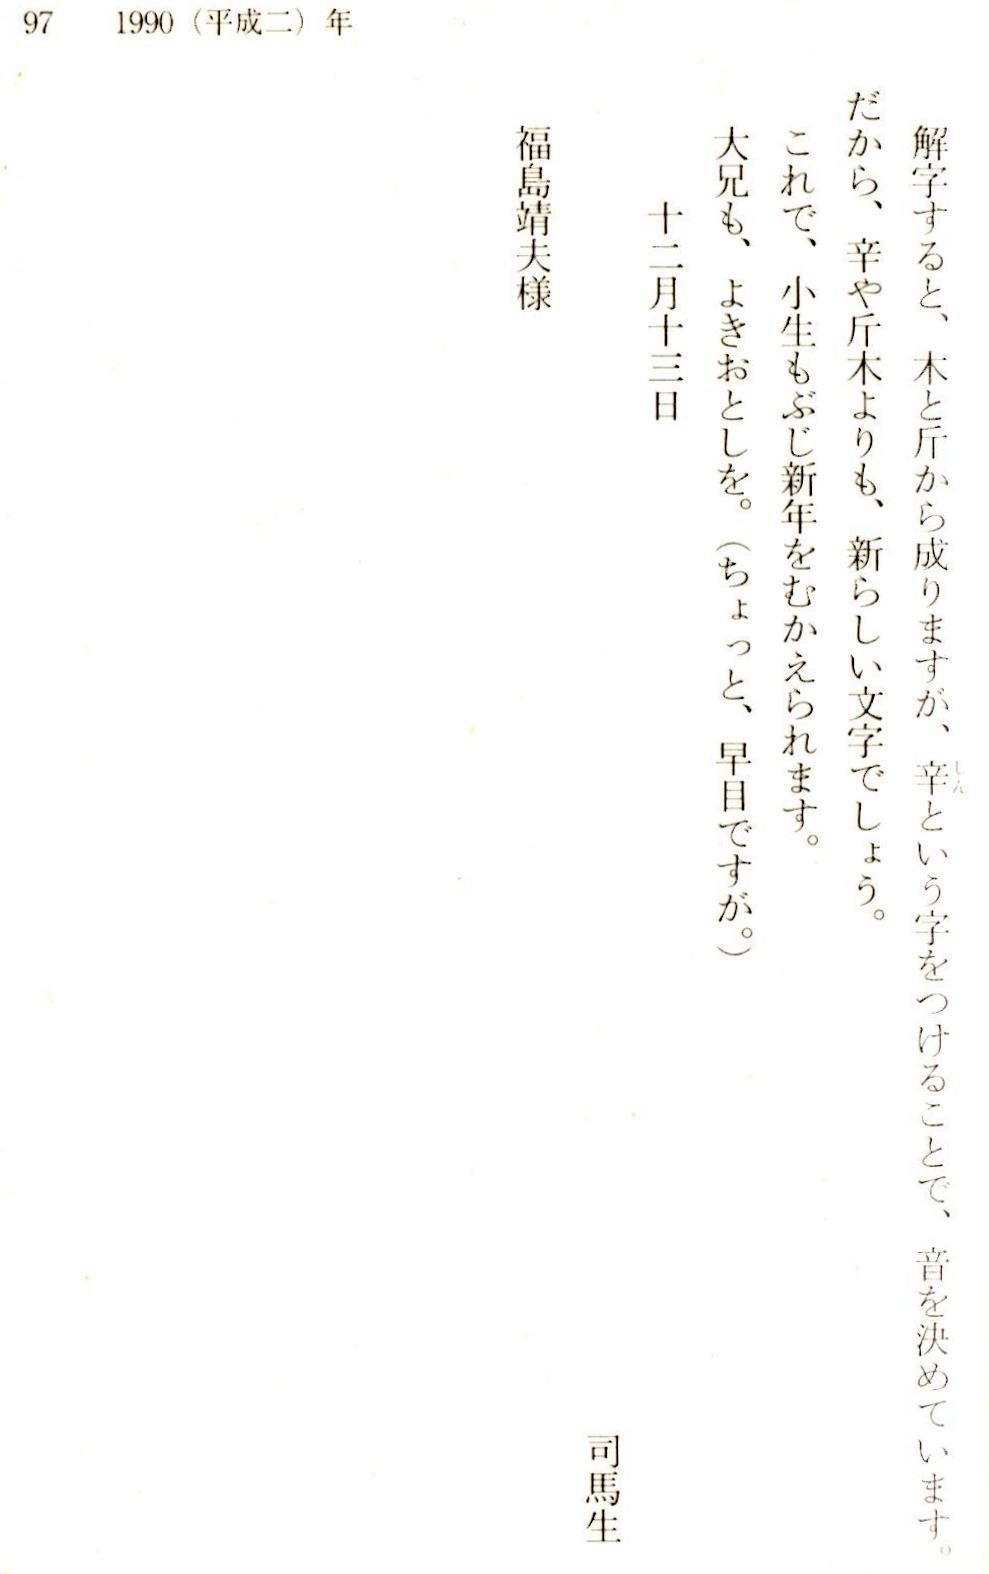 97　1990（平成二）年
解字すると、木と斤から成りますが、辛という字をつけることで、音を決めています。
しん
だから、辛や斤木よりも、新らしい文字でしょう。
これで、小生もぶじ新年をむかえられます。
大兄も、よきおとしを。（ちょっと、早目ですが。）
十二月十三日
司馬生
福島靖夫様